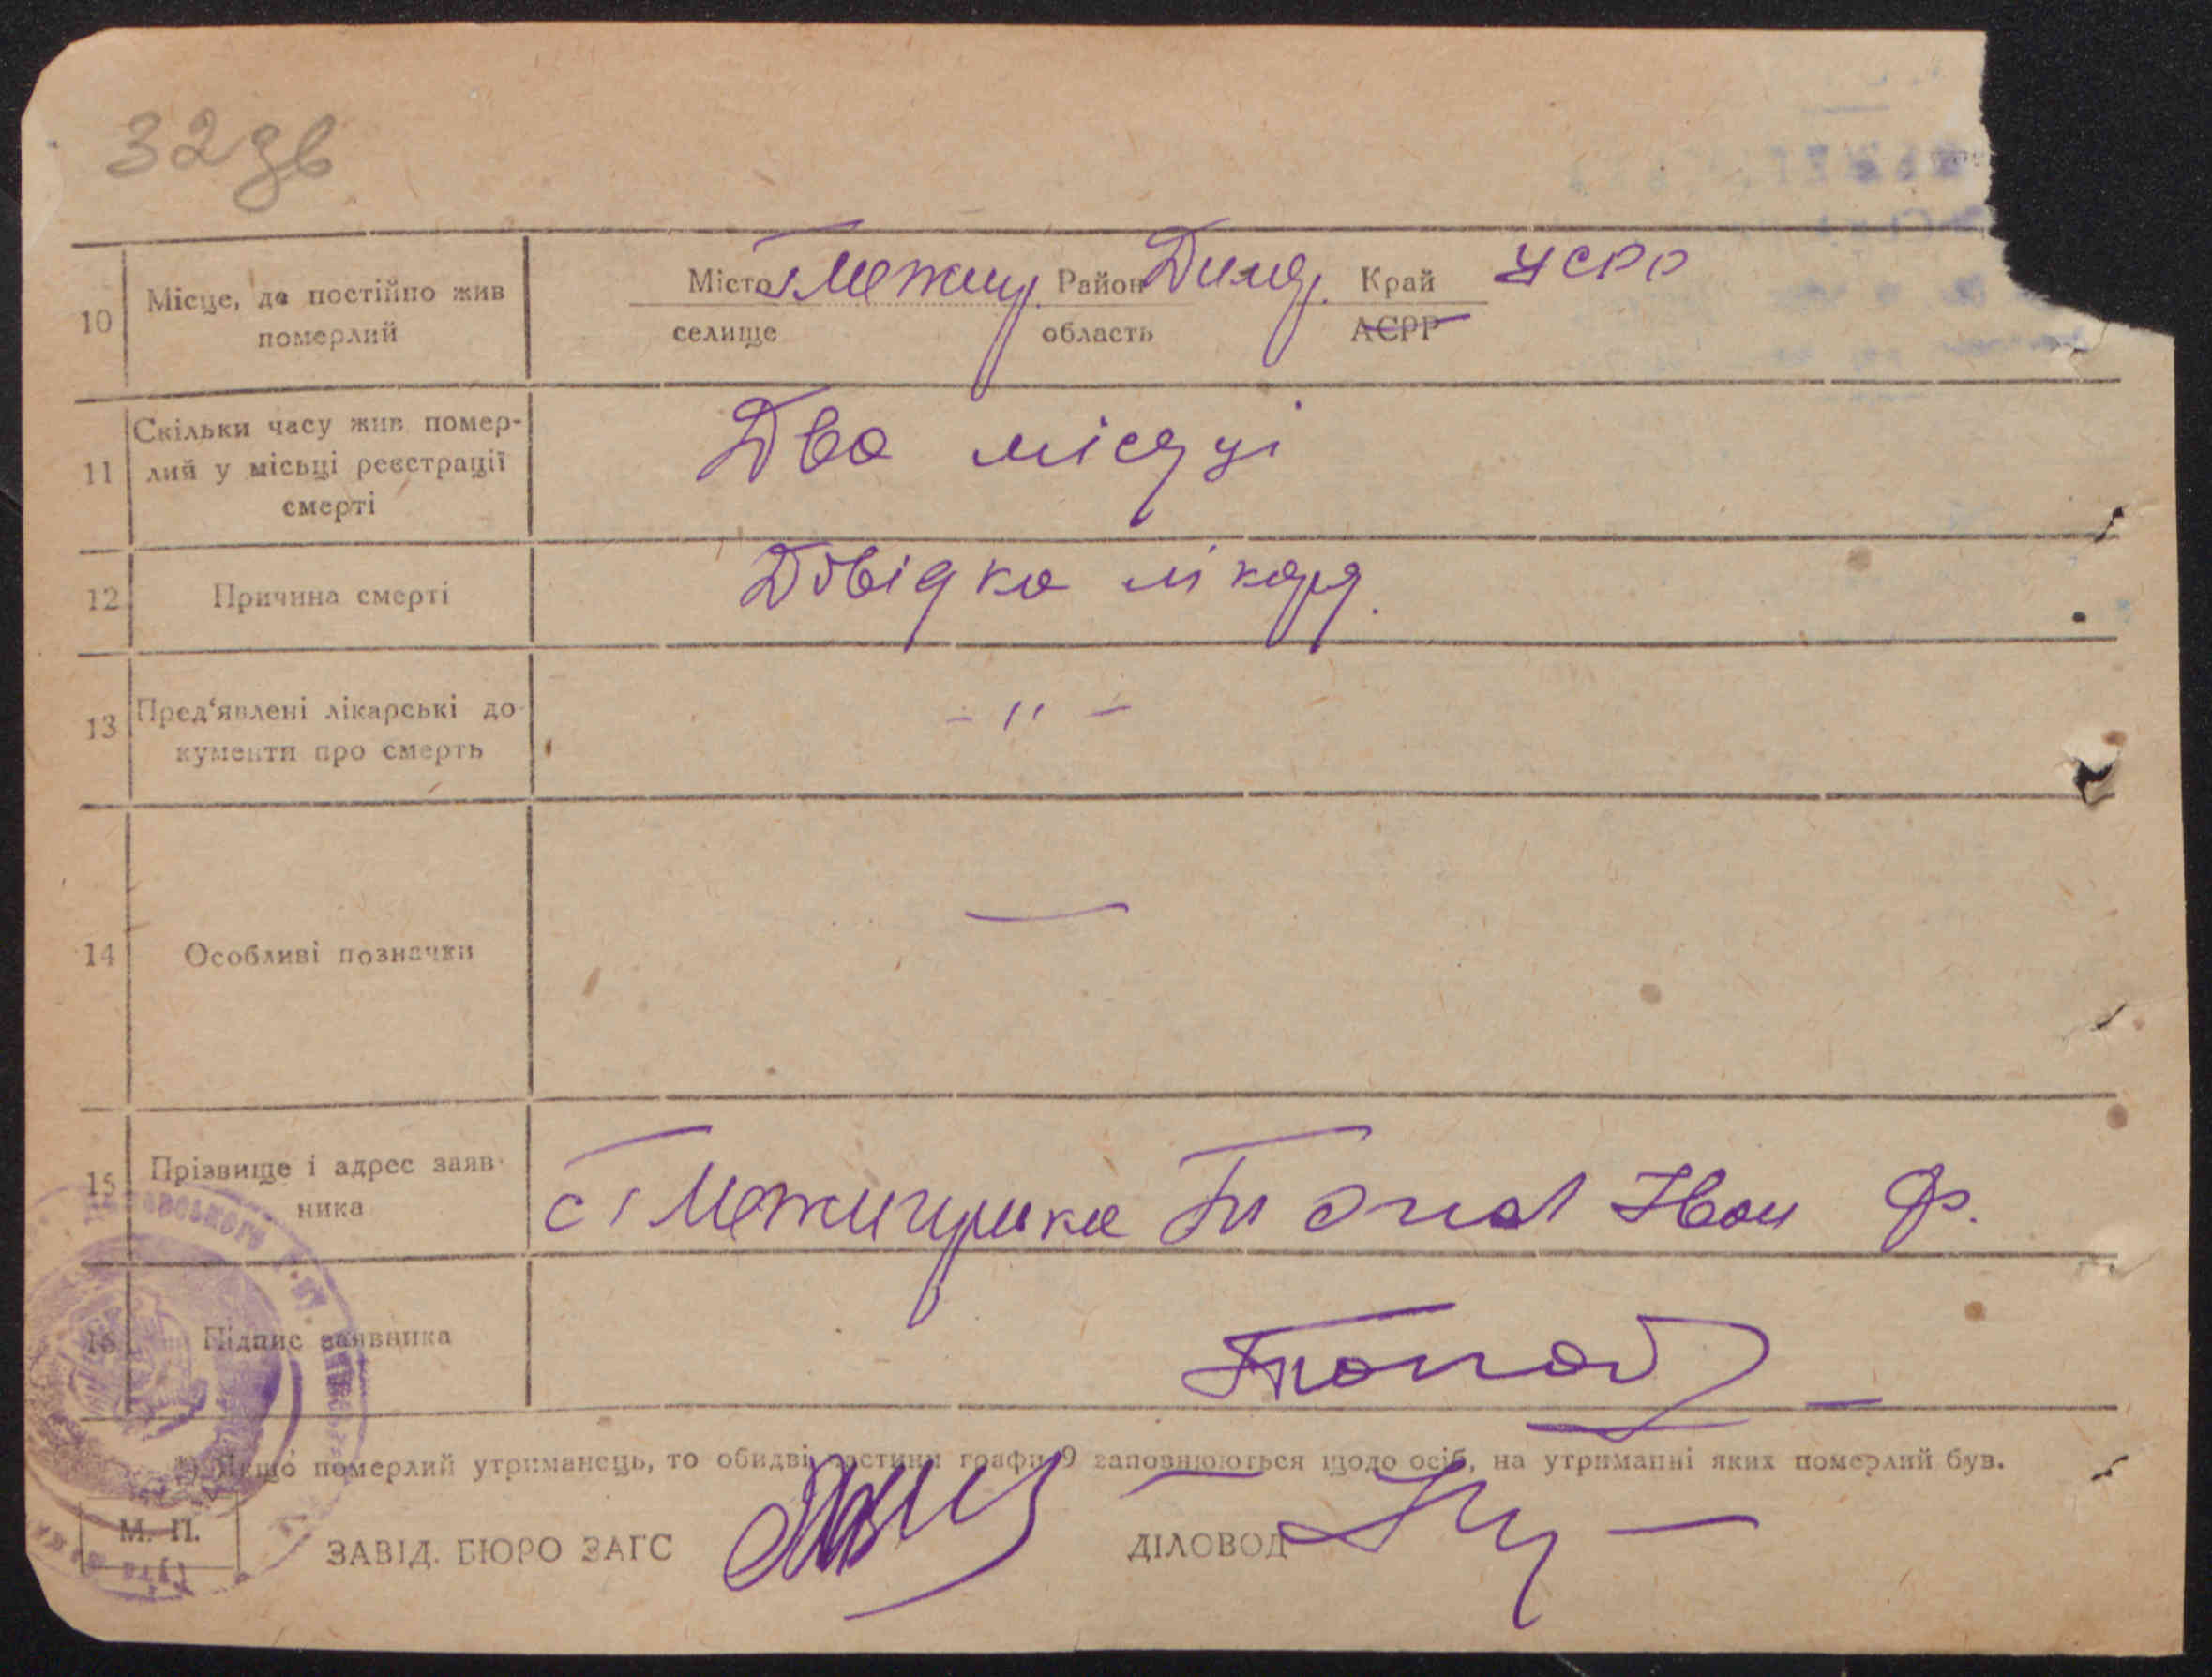 32зв
10 Місце, де постійно жив
померлий
Місто Межиг. Район Димер. Край УСРР
селище область АСРР
11 Скільки часу жив помер-
лий у місьці реєстрації
смерті
Два місяці
12 Причина смерті
Довідка лікаря.
13 Пред'явлені лікарські до-
кументи про смерть
- " -
14 Особливі позначки
—
15 Прізвище і адрес заяв-
ника
с Іван Ф.
16 Підпис заявника
*) Якщо померлий утриманець, то обидві частини графи 9 заповнюються щодо осіб, на утриманні яких померлий був.
М. П.
ЗАВІД. БЮРО ЗАГС ДІЛОВОД